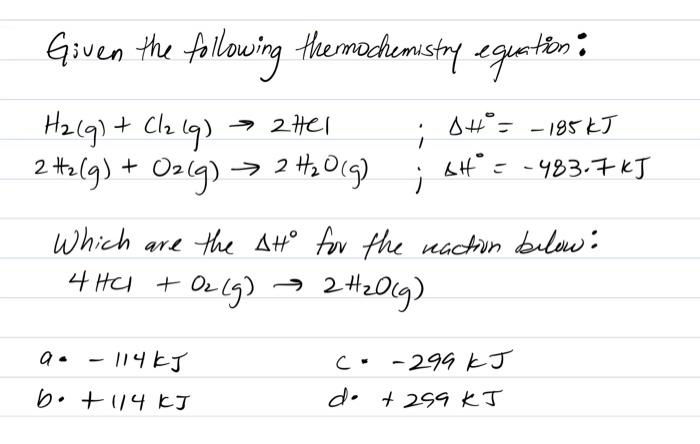 Given the following thermochemistry equation:
H₂(g) + Cl₂(g) → 2HCl ; ΔH° = -185 kJ
2H₂(g) + O₂(g) → 2H₂O(g) ; ΔH° = -483.7 kJ
Which are the ΔH° for the reaction below:
4HCl + O₂(g) → 2H₂O(g)
a. - 114 kJ c. - 299 kJ
b. + 114 kJ d. + 299 kJ